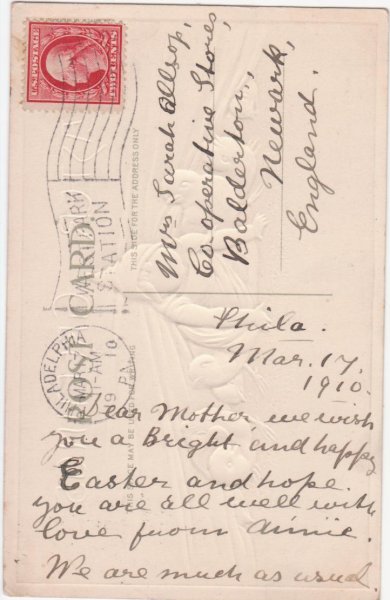 U.S. POSTAGE
TWO CENTS
POST CARD.
THIS SIDE FOR THE ADDRESS ONLY
PHILADELPHIA
PA
MAR 17
AM
1910
STATION
Mrs Sarah Allsop,
Cooperative Stores,
Balderton,
Newark,
England.
Phila.
Mar. 17.
1910.
Dear Mother we wish
you a Bright and happy
Easter and hope
you are all well with
love from Annie.
We are much as usual